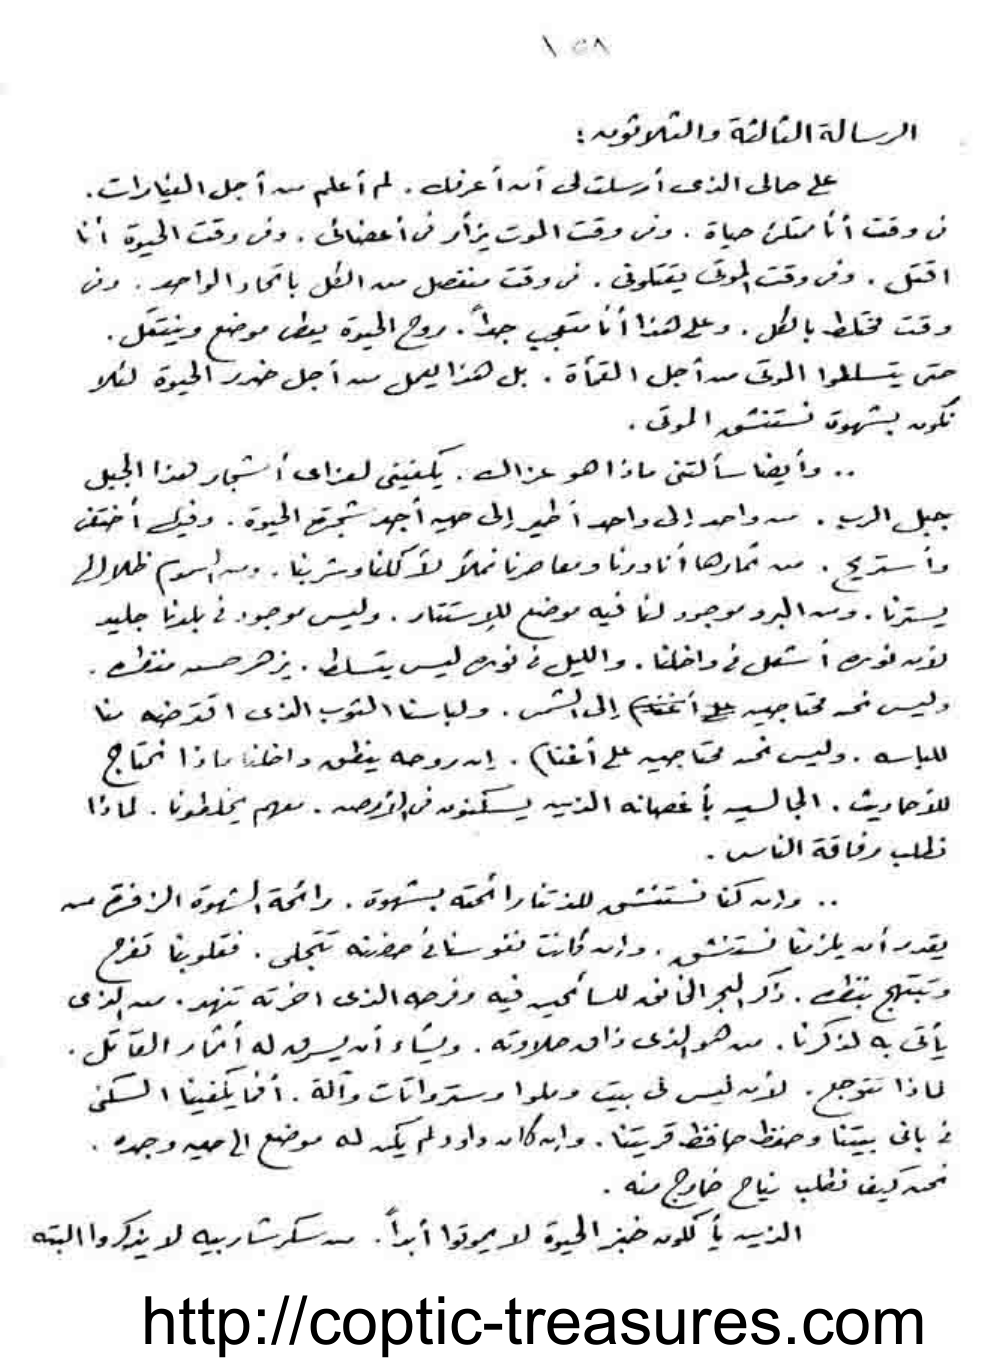 ١٥٨
الرسالة الثالثة والثلاثون :
على حالى الذى أرسلت لى أن أعرفك . لم أعلم من أجل الغيارات .
فى وقت أنا ممتلئ حياة . وفى وقت الموت يزأر فى أعضائى . وفى وقت الحيوة أنا
اقتل . وفى وقت الموتى يقتلونى . فى وقت منفصل من الكل باتحاد الواحد . وفى
وقت مختلط بالكل . وعلى هذا أنا متعجب جداً . روح الحيوة يعطى موضع وينتقل .
حتى يتسلطوا الموتى من أجل القمأة . بل هذا يعمل من أجل ضرر الحيوة لئلا
نكون بشهوة نستنشق الموتى .
.. وأيضا سألتنى ماذا هو عزاك . يكفينى لعزاى أشجار هذا الجبل
جبل الرب . من واحد إلى واحد أطير إلى حين أجد شجرة الحيوة . وفيها أختفى
وأستريح . من ثمارها أنادرنا ومعاصرنا نملأ لأكلنا وشربنا . ومن السموم ظلالها
يسترنا . ومن البرد موجود لنا فيه موضع للإستتار . وليس موجود فى بلدنا جليد
لأن نوره أشعل فى داخلنا . والليل فى نوره ليس يتسلط . يزهر حسن منظره .
وليس نحن محتاجين إلى الشمس . ولباسنا الثوب الذى اقترضه منا
للباسه . وليس نحن محتاجين على أغنام . إن روحه ينطق داخلنا ماذا نحتاج
للأحاديث . الجالسين بأغصانه الذين يسكنون فى الأرض . معهم يخلطونا . لماذا
نطلب رفاقة الناس .
.. وإن كنا نستنشق للذتنا رائحته بشهوة . رائحة الشهوة الزفرة من
يقدر أن يلزمنا نستنشق . وإن كانت نفوسنا فى حضنه تتجلى . فقلوبنا تفرح
وتبتهج بنظره . ذكر البحر الخانق للسائحين فيه وفرحه الذى اخرته تنهد . من الذى
يأتى به لذكرنا . من هو الذى ذاق حلاوته . ويشاء أن يسرق له أثمار القاتل .
لماذا نتوجع . لأن ليس لى بيت وملوا وستر واتات وآلة . أفما يكفينا السكنى
فى بانى بيتنا وحفظ حافظ قريتنا . وإن كان داود لم يكن له موضع الى حين وجده .
نحن كيف نطلب نياح خارج منه .
الذين يأكلون خبز الحيوة لا يموتوا أبداً . من سكر شاربيه لا يذكروا البته
http://coptic-treasures.com